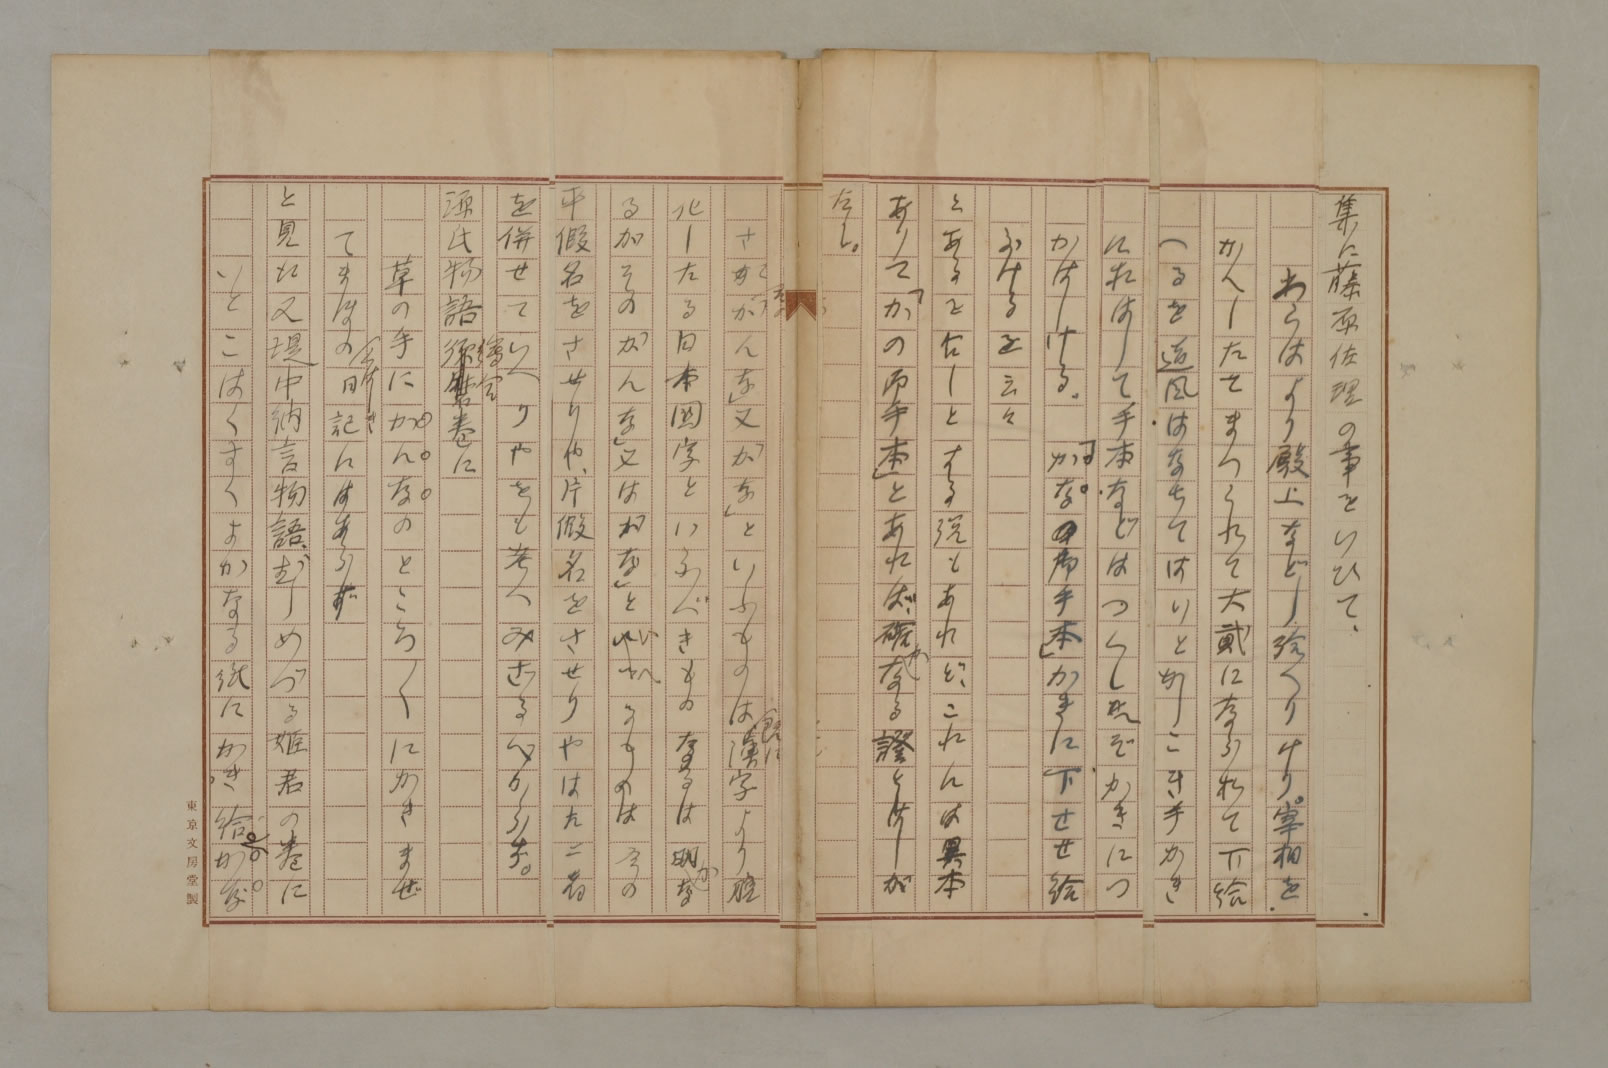 集に藤原佐理の事をいひて、
わらはより殿上などし給へりけり。宰相を
かへしたてまつられて大貳になられて下給
へるを道風はなちてはいとかしこき手かき
におはして手本などはつくしにぞかきにつ
かはしける。「かな。の御手本」かきに下せ給
ふけるを云々
とあるを古しとする説もあれど、これには異本
ありて「かの御手本」とあれば、確かなる證としが
たし。
さて「かんな」又「かな」といふものは漢字より脱
化したる日本國字といふべきものなるは明かな
るがその「かんな」又は「かな」といへるものは今の
平假名をさせりや、片假名をさせりやはた二者
を併せていへりやをも考へみざるべからず。
源氏物語繪合巻に
草の手にかんなのところ〱にかきまぜ
てまほの日記にはあらず
と見え又堤中納言物語、虫めづる姫君の巻に
いとこはくすくよかなる紙にかき給ふ。かな
東京文房堂製